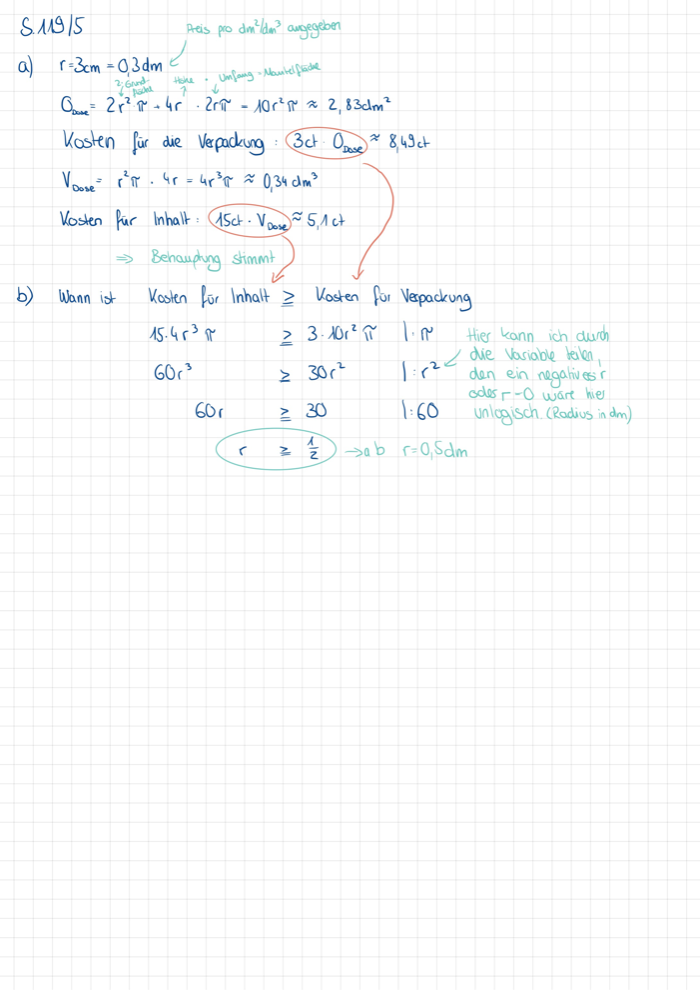 S. 119/5
Preis pro dm²/dm³ angegeben
a) r = 3cm = 0,3dm
2·Grundfläche Höhe · Umfang = Mantelfläche
O_Dose = 2r²π + 4r · 2rπ = 10r²π ≈ 2,83dm²
Kosten für die Verpackung : 3ct · O_Dose ≈ 8,49ct
V_Dose = r²π · 4r = 4r³π ≈ 0,34 dm³
Kosten für Inhalt : 15ct · V_Dose ≈ 5,1ct
⇒ Behauptung stimmt
b) Wann ist Kosten für Inhalt ≥ Kosten für Verpackung
15·4r³π ≥ 3·10r²π |·π
60r³ ≥ 30r² |:r²
60r ≥ 30 |:60
r ≥ 1/2 → ab r=0,5dm
Hier kann ich durch
die Variable teilen,
den ein negatives r
oder r=0 wäre hier
unlogisch. (Radius in dm)